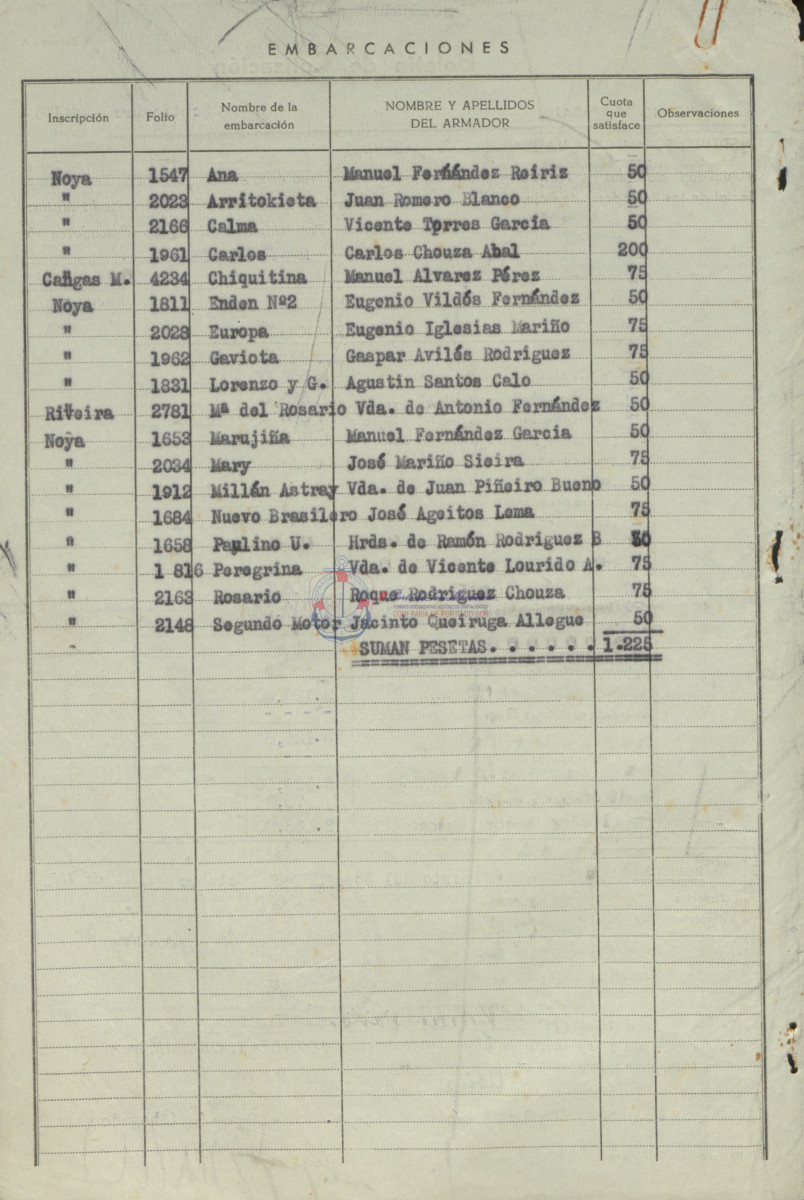 EMBARCACIONES
Inscripción Folio Nombre de la embarcación NOMBRE Y APELLIDOS DEL ARMADOR Cuota que satisface Observaciones
Noya 1547 Ana Manuel Fernández Reiriz 50
" 2023 Arritokieta Juan Romero Blanco 50
" 2166 Calma Vicente Torres Garcia 50
" 1961 Carlos Carlos Chouza Abal 200
Cangas M. 4234 Chiquitina Manuel Alvarez Pérez 75
Noya 1811 Enden Nº2 Eugenio Vildés Fernández 50
" 2028 Europa Eugenio Iglesias Mariño 75
" 1962 Gaviota Gaspar Avilés Rodriguez 75
" 1831 Lorenzo y G. Agustin Santos Calo 50
Riveira 2781 Mª del Rosario Vda. de Antonio Fernández 50
Noya 1653 Marujiña Manuel Fernández Garcia 50
" 2034 Mary José Mariño Sieira 75
" 1912 Millán Astray Vda. de Juan Piñeiro Bueno 50
" 1684 Nuevo Brasilero José Ageitos Lema 75
" 1658 Paulino U. Hrds. de Ramón Rodriguez B 50
" 1 816 Peregrina Vda. de Vicente Lourido A. 75
" 2163 Rosario Roque Rodriguez Chouza 75
CONFRARÍA DE PORTO DO SON
" 2148 Segundo Motor Jacinto Queiruga Allegue 50
SUMAN PESETAS. . . . . . 1.225